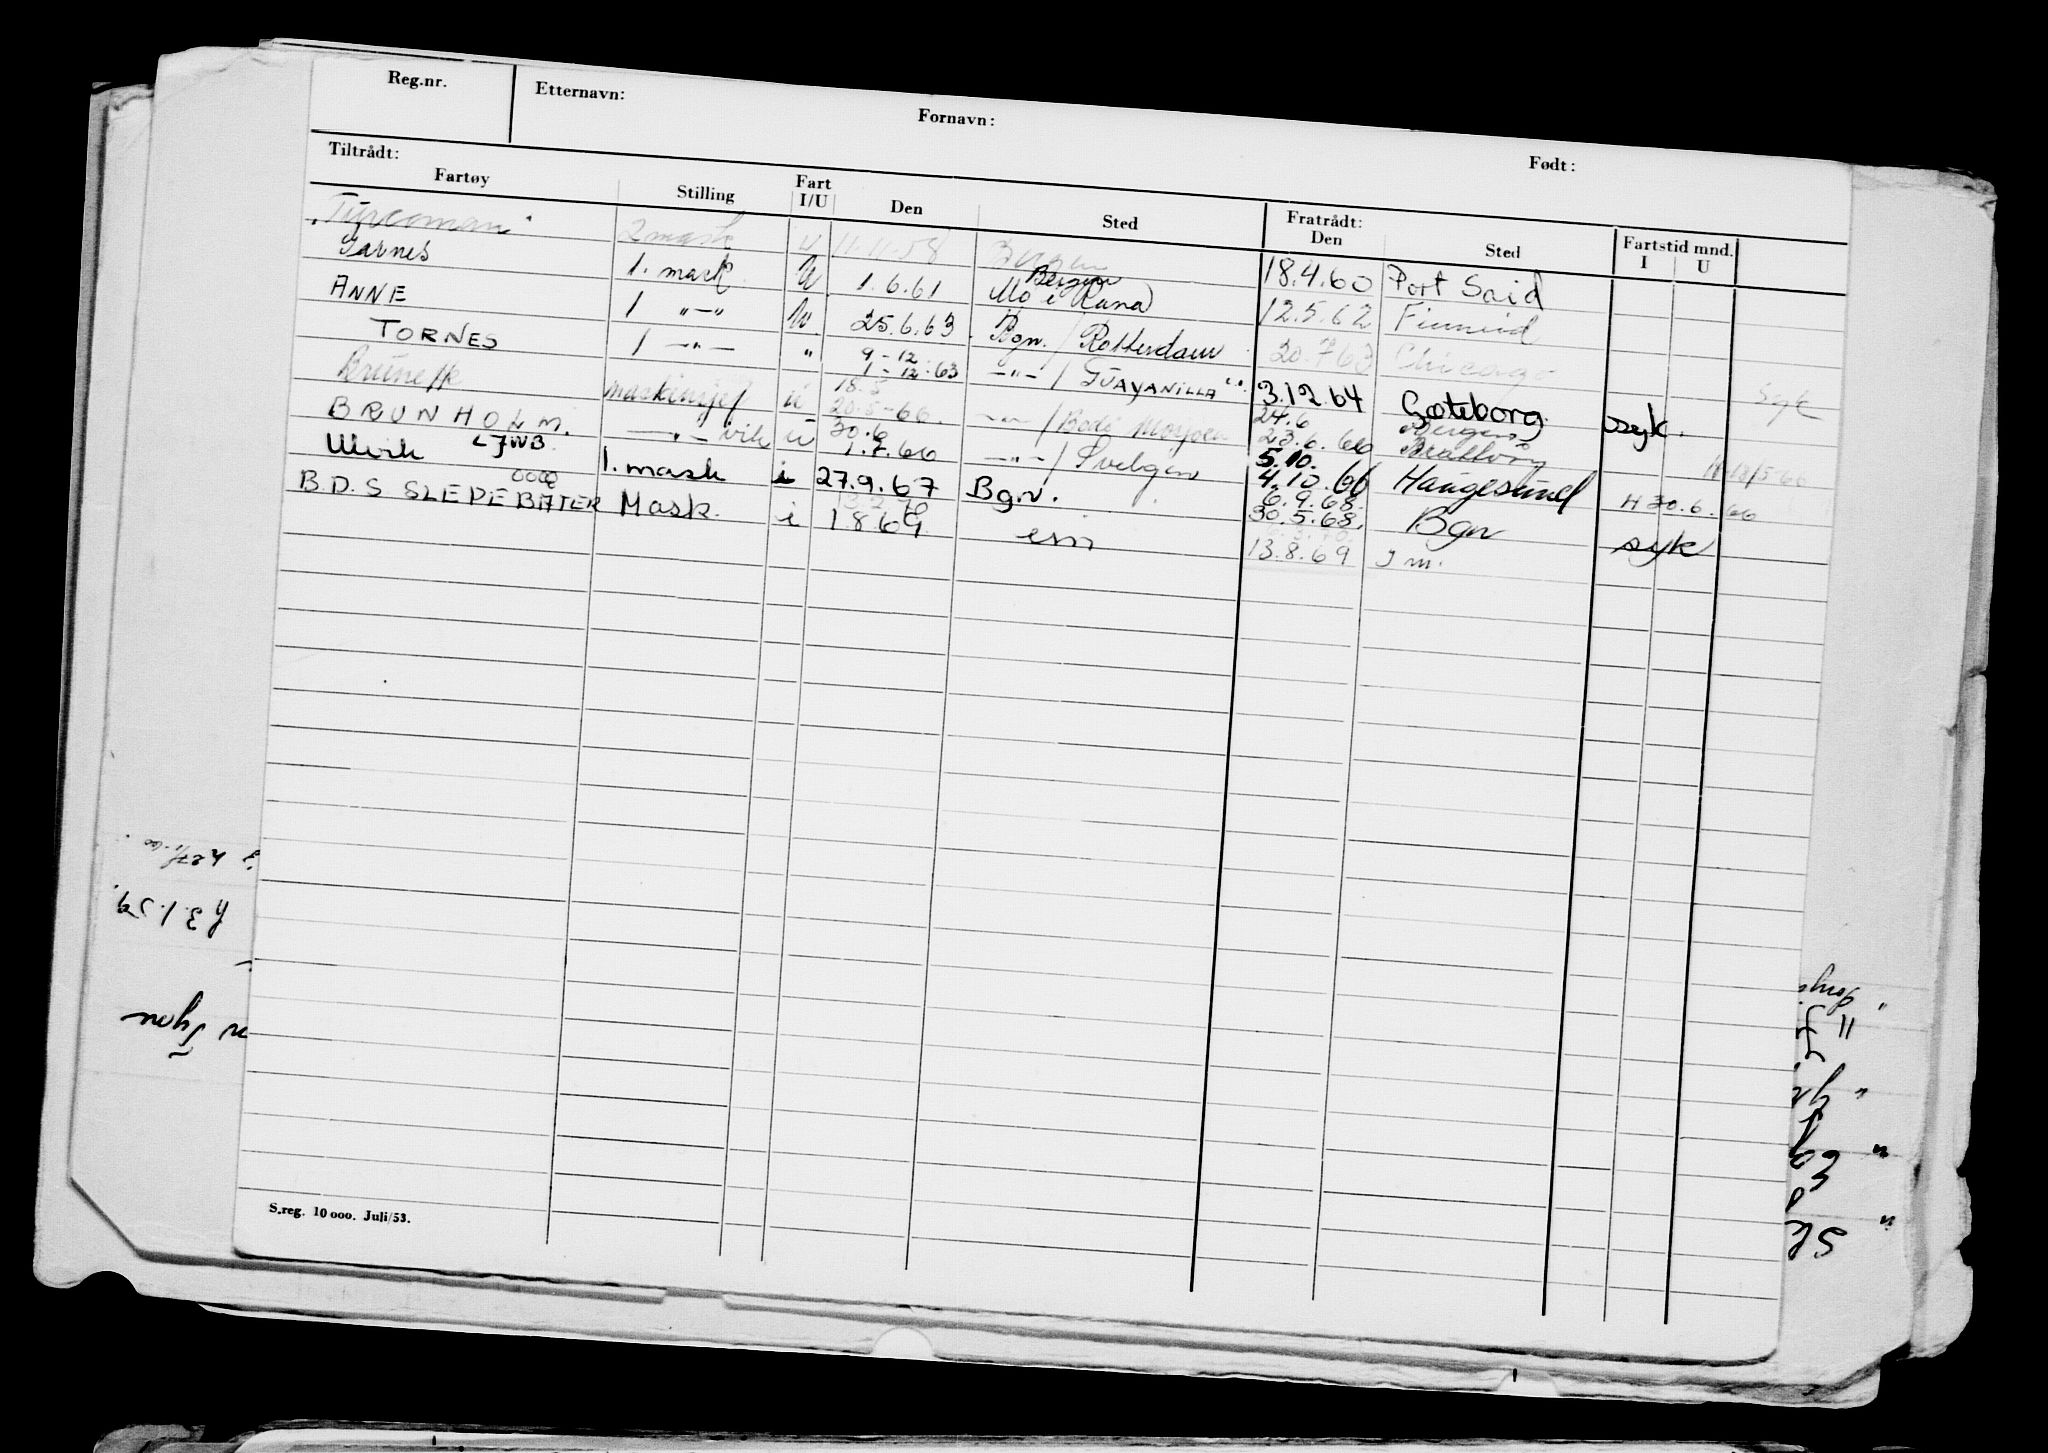 Reg.nr. Etternavn: Fornavn: Født:
Tiltrådt: Fratrådt: Fartstid mnd.
Fartøy Stilling Fart I/U Den Sted Den Sted I U
"Turcoman" 2 mask U 11.11.58 Bergen 18.4.60 Port Said
Garnes 1. mask U 1.6.61 Bergen Mo i Rana 12.5.62
ANNE 1 -"- U 25.6.63 Bgn. / Rotterdam 20.7.63 Chicago syk
TORNES 1 -"- " 9-12 1-12-63 -"- / GUAYANILLA 3.12.64 Gøteborg syk.
maskinsjef U 18.5 20.5-66. -"- / Bodø Mosjøen 24.6 23.6.66 Bergen Brattvåg
BRUNHOLM. LJWB -"- vik U 30.6 1.7.66 -"- / Svelgen 5.10. 4.10.66 Haugesund H 30.6.66
Ulvik 1. mask i 27.9.67 Bgn. 6.9.68 30.5.68. Bgn syk
B.D.S SLEPEBÅTER Mask. i 1869 13.8.69
S.reg. 10 000. Juli/53.
h 3.1.59